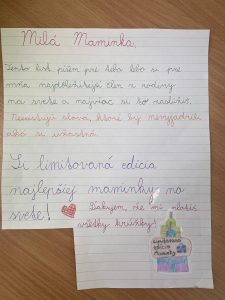 Milá Maminka,
Tento list píšem pre teba lebo si pre
mňa najdôležitejší člen z rodiny
na svete a najviac si to
Neexistujú slová, ktoré by nevyjadrili
aká si úžasná.
Si limitovaná edícia
najlepšej maminky na
svete!
Ďakujem, že mi platíš
všetky krúžky!
Limitovaná
edícia
Maminky